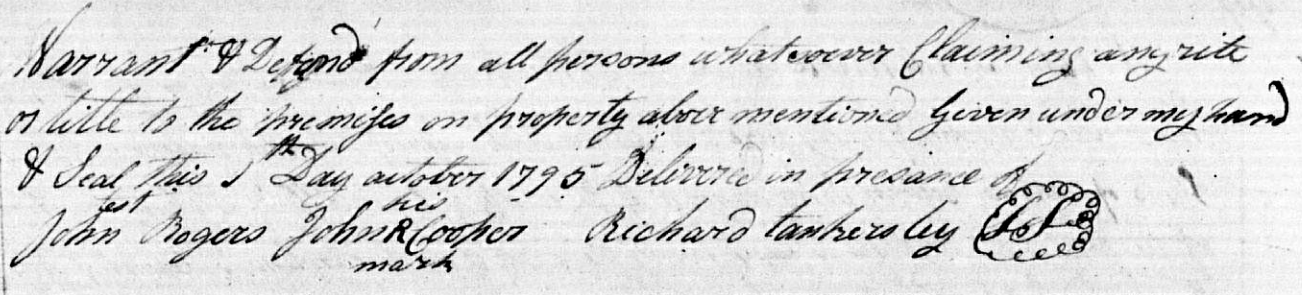 Warrant & Defend from all persons whatsoever Claiming any rite
or title to the premises on property above mentioned Given under my hand
& Seal this 5th Day october 1795 Delivered in presance of
test his
John Rogers John R Cooper Richard tankersley LS
mark